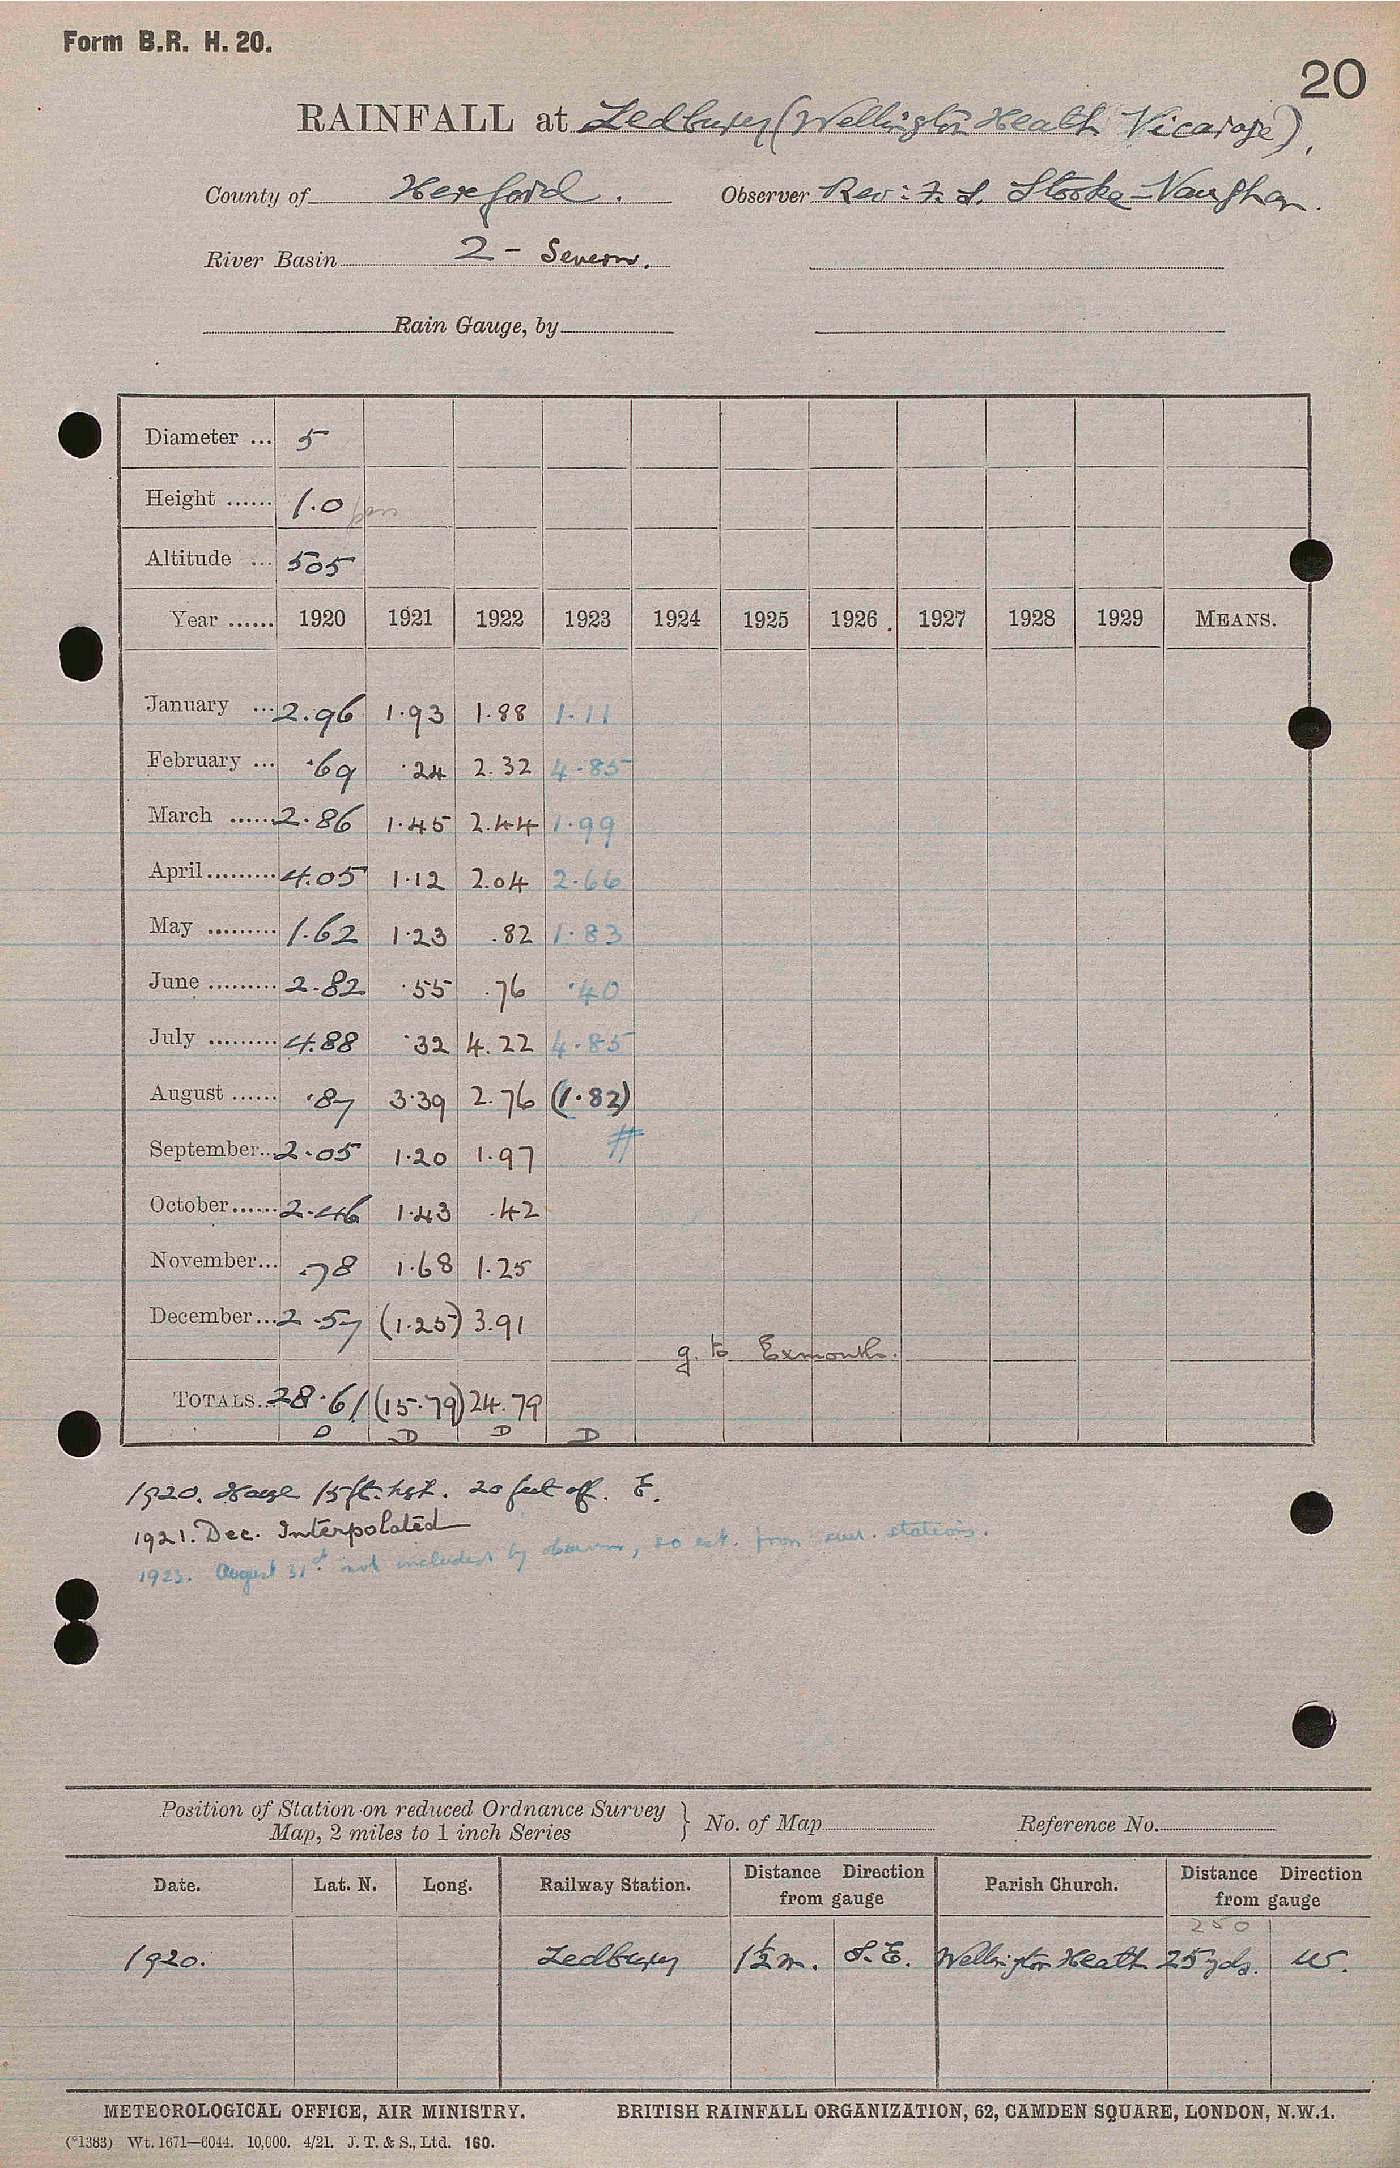 Form B.R. H. 20.
20
RAINFALL at Ledbury (Wellington Heath Vicarage).
County of Hereford. Observer Rev: F. S. Stooke-Vaughan.
River Basin 2 - Severn.
Rain Gauge, by
Diameter ... 5
Height ...... 1.0
Altitude ... 505
Year ...... 1920 1921 1922 1923 1924 1925 1926 1927 1928 1929 MEANS.
January ... 2.96 1.93 1.88 1.11
February ... .69 .24 2.32 4.85
March ...... 2.86 1.45 2.44 1.99
April ......... 4.05 1.12 2.04 2.66
May ......... 1.62 1.23 .82 1.83
June ......... 2.82 .55 .76 .40
July ......... 4.88 .32 4.22 4.85
August ...... .87 3.39 2.76 (1.82)
September... 2.05 1.20 1.97 #
October...... 2.46 1.43 .42
November... .78 1.68 1.25
December... 2.57 (1.25) 3.91
g. to Exmouth.
TOTALS... 28.61 (15.79) 24.79
D D D D
1920. House 15 ft. hgh. 20 feet off. E.
1921. Dec. Interpolated
1923. August 31st. not included by observer, so est. from surr. stations.
Position of Station on reduced Ordnance Survey Map, 2 miles to 1 inch Series } No. of Map Reference No.
Date. Lat. N. Long. Railway Station. Distance Direction from gauge Parish Church. Distance Direction from gauge
250
1920. Ledbury 1½ m. S.E. Wellington Heath 25 yds. W.
METEOROLOGICAL OFFICE, AIR MINISTRY. BRITISH RAINFALL ORGANIZATION, 62, CAMDEN SQUARE, LONDON, N.W.1.
(*1383) Wt. 1671—6044. 10,000. 4/21. J. T. & S., Ltd. 160.